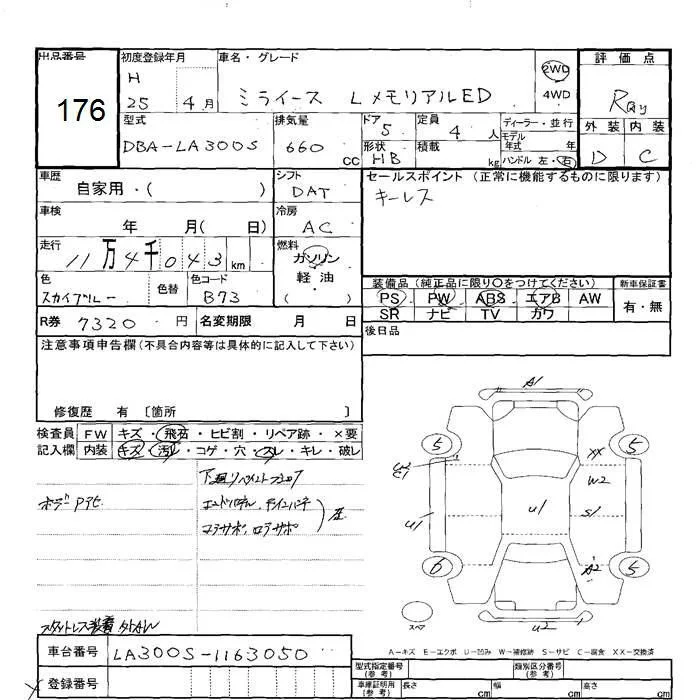 出品番号
176
初度登録年月
H
25 4月
車名・グレード
ミライース LメモリアルED
2WD
4WD
評価点
RAY
外装 内装
D C
型式
DBA-LA300S
排気量
660 CC
ドア 5
形状 HB
定員 4人
積載 kg
ディーラー・並行
モデル年式 年
ハンドル 左・右
車歴
自家用・( )
シフト
DAT
セールスポイント (正常に機能するものに限ります)
キーレス
車検
年 月( 日)
冷房
AC
走行
11万4千043km
燃料
ガソリン
軽油
( )
色
スカイブルー
色替
色コード
B73
装備品(純正品に限り○をつけてください)
PS PW ABS エアB AW
SR ナビ TV カワ
新車保証書
有・無
R券 7320円
名変期限 月 日
後日品
注意事項申告欄(不具合内容等は具体的に記入して下さい)
修復歴 有 〔箇所 〕
検査員記入欄
FW キズ・飛石・ヒビ割・リペア跡・×要
内装 キズ・汚レ・コゲ・穴・スレ・キレ・破レ
左
A1
5 5
XX
W2
U1
U1
S1
A2
6 5
スペア
U2
A-キズ E-エクボ U-凹み W-補修跡 S-サビ C-腐食 XX-交換済
車台番号
LA300S-1163050
登録番号
型式指定番号(参考)
類別区分番号(参考)
車庫証明用(参考)
長さ cm
幅 cm
高さ cm